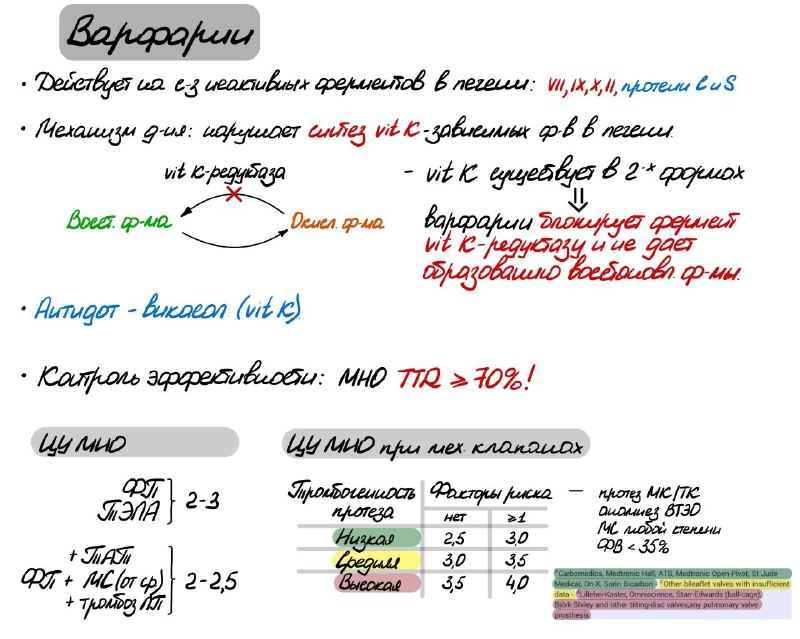 Варфарин
• Действует на с-з неактивных ферментов в печени: VII, IX, X, II, протеин C и S
• Механизм д-ия: нарушает синтез vit K-зависимых ф-в в печени.
vit K-редуктаза
Восст. ф-ма
Окисл. ф-ма
- vit K существует в 2-х формах
варфарин блокирует фермент
vit K-редуктазу и не дает
образованию восстановл. ф-мы.
• Антидот - викасол (vit K)
• Контроль эффективности: МНО TTR ≥ 70%!
ЦУ МНО
ФП
ТЭЛА
2-3
+ ТАТ
ФП + МС (от ср)
+ тромбоз ЛП
2-2,5
ЦУ МНО при мех. клапанах
Тромбогенность протеза
Факторы риска
нет
≥1
Низкая 2,5 3,0
Средняя 3,0 3,5
Высокая 3,5 4,0
— протез МК/ТК
анамнез ВТЭО
МС любой степени
ФВ < 35%
Carbomedics, Medtronic Hall, ATS, Medtronic Open-Pivot, St Jude
Medical, On-X, Sorin Bicarbon Other bileaflet valves with insufficient
data - Lillehei-Kaster, Omniscience, Starr-Edwards (ball-cage),
Björk-Shiley and other tilting-disc valves,any pulmonary valve
prosthesis